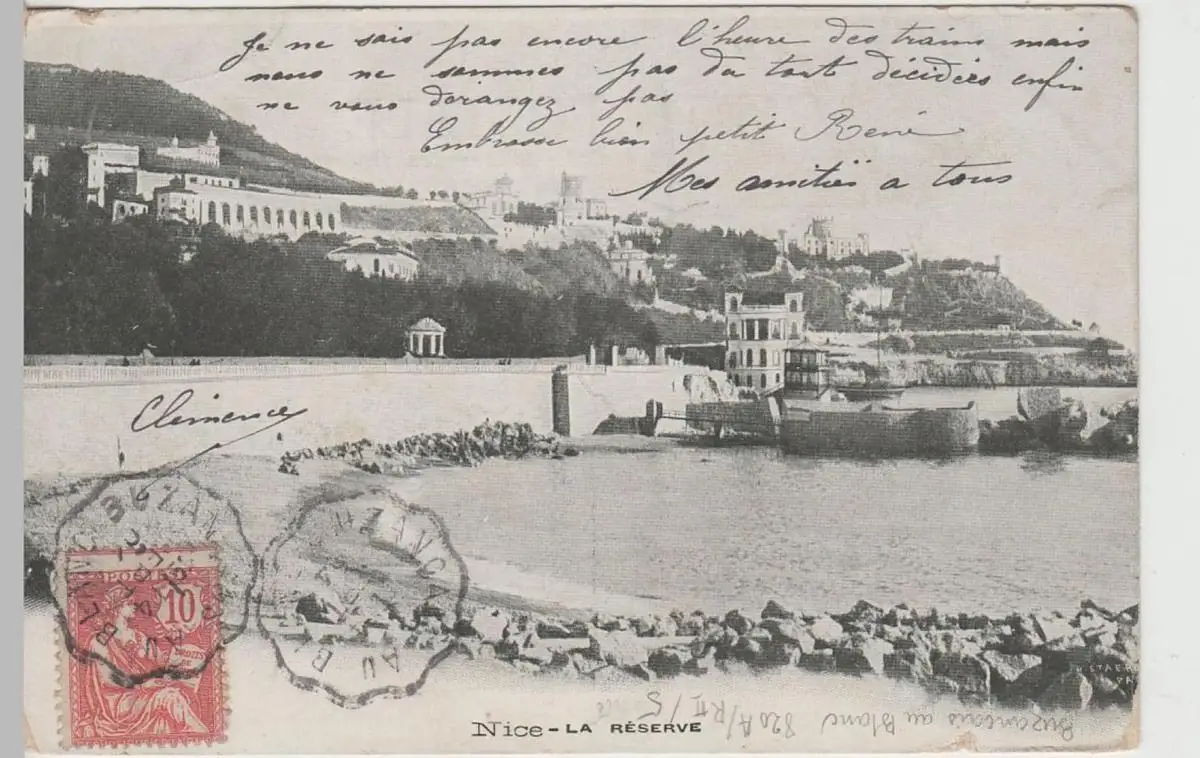 Je ne sais pas encore l'heure des trains mais
nous ne sommes pas du tout décidées enfin
ne vous dérangez pas
Embrasse bien petit René
Mes amitiés a tous
Clémence
BUZANÇAIS AU BLANC
BUZANÇA AU BL
POSTE
10
DROITS
DE
Nice - LA RÉSERVE
Buzançais au Blanc